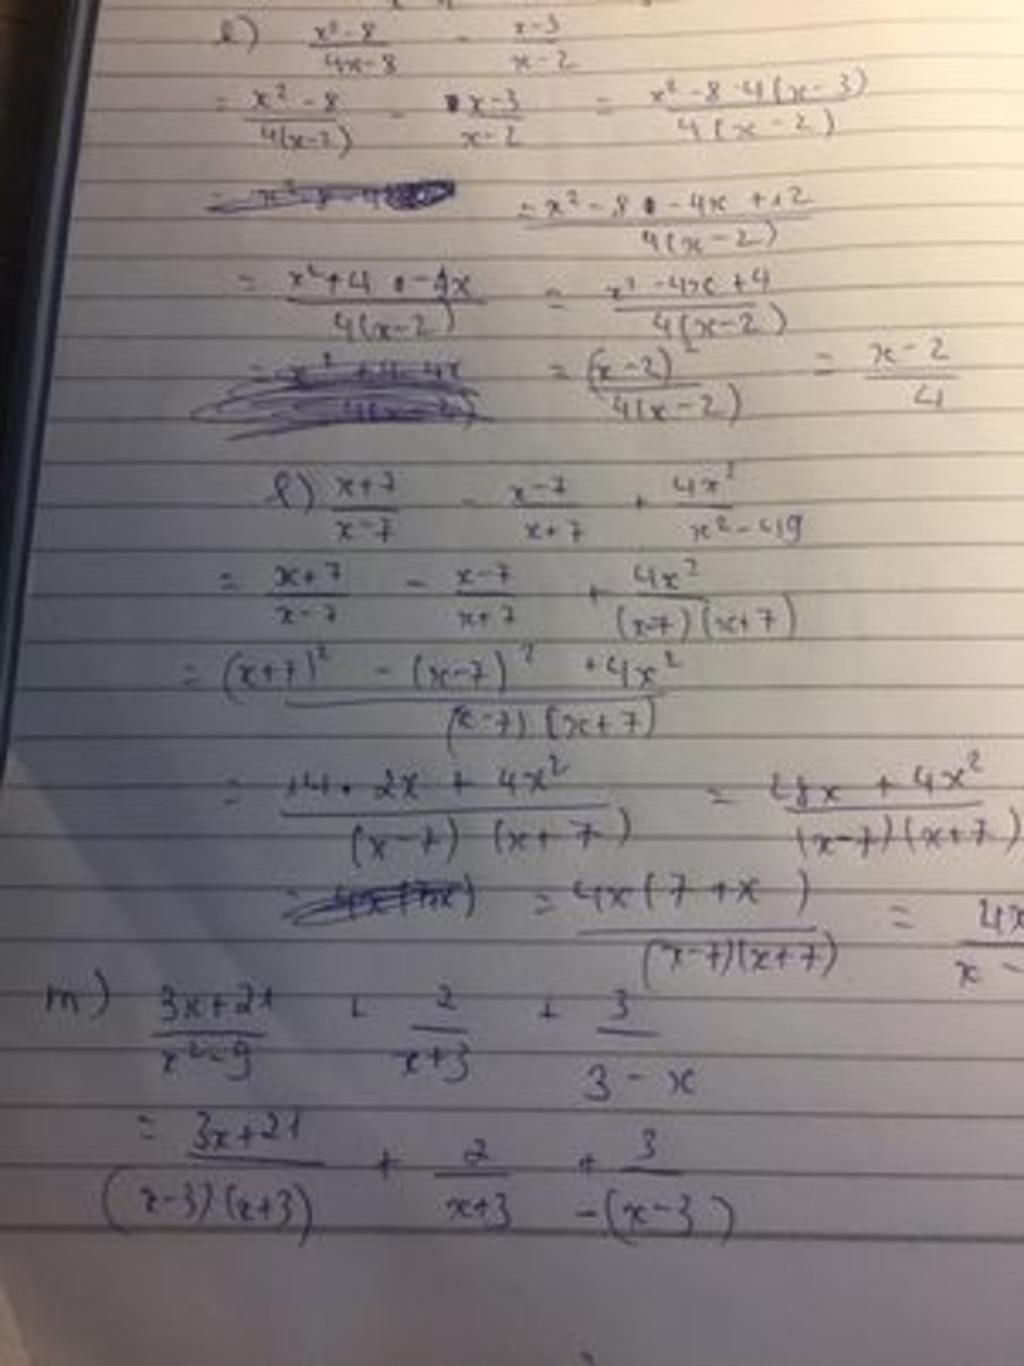 k) (x² - 8)/(4x - 8) - (x - 3)/(x - 2)
= (x² - 8)/(4(x - 2)) - (x - 3)/(x - 2) = (x² - 8 - 4(x - 3))/(4(x - 2))
= (x² - 8 - 4x + 12)/(4(x - 2))
= (x² + 4 - 4x)/(4(x - 2)) = (x² - 4x + 4)/(4(x - 2))
= (x - 2)²/(4(x - 2)) = (x - 2)/4
l) (x + 7)/(x - 7) - (x - 7)/(x + 7) + 4x²/(x² - 49)
= (x + 7)/(x - 7) - (x - 7)/(x + 7) + 4x²/((x - 7)(x + 7))
= ((x + 7)² - (x - 7)² + 4x²)/((x - 7)(x + 7))
= (14 · 2x + 4x²)/((x - 7)(x + 7)) = (28x + 4x²)/((x - 7)(x + 7))
= 4x(7 + x)/((x - 7)(x + 7)) = 4x/(x -
m) (3x + 21)/(x² - 9) + 2/(x + 3) + 3/(3 - x)
= (3x + 21)/((x - 3)(x + 3)) + 2/(x + 3) + 3/(-(x - 3))